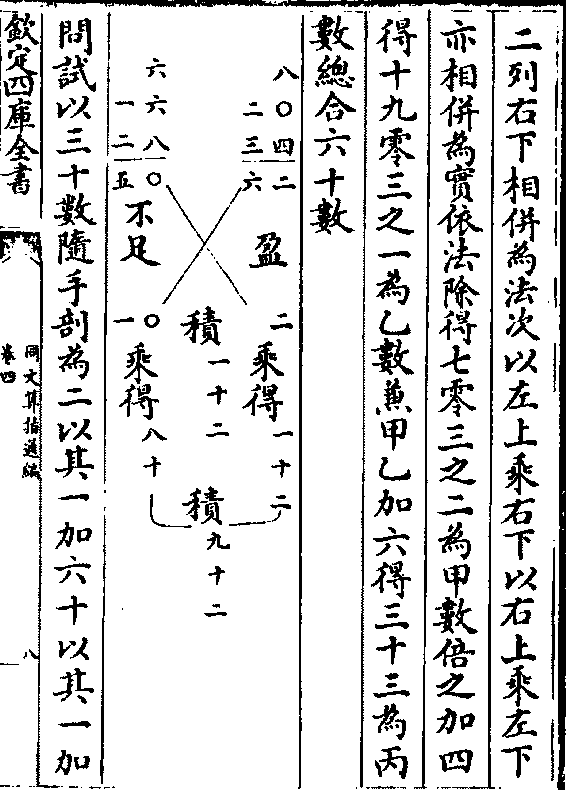 二列右下相併為法次以左上乘右下以右上乘左下
亦相併為實依法除得七零三之二為甲數倍之加四
得十九零三之一為乙數兼甲乙加六得三十三為丙
數總合六十數
八〇四二
二三六
盈
二乘得一十二
積一十二
積九十二
六六八〇
一二五
不足
一〇乘得八十
問試以三十數隨手剖為二以其一加六十以其一加
欽定四庫全書
同文算指通編
卷四
八